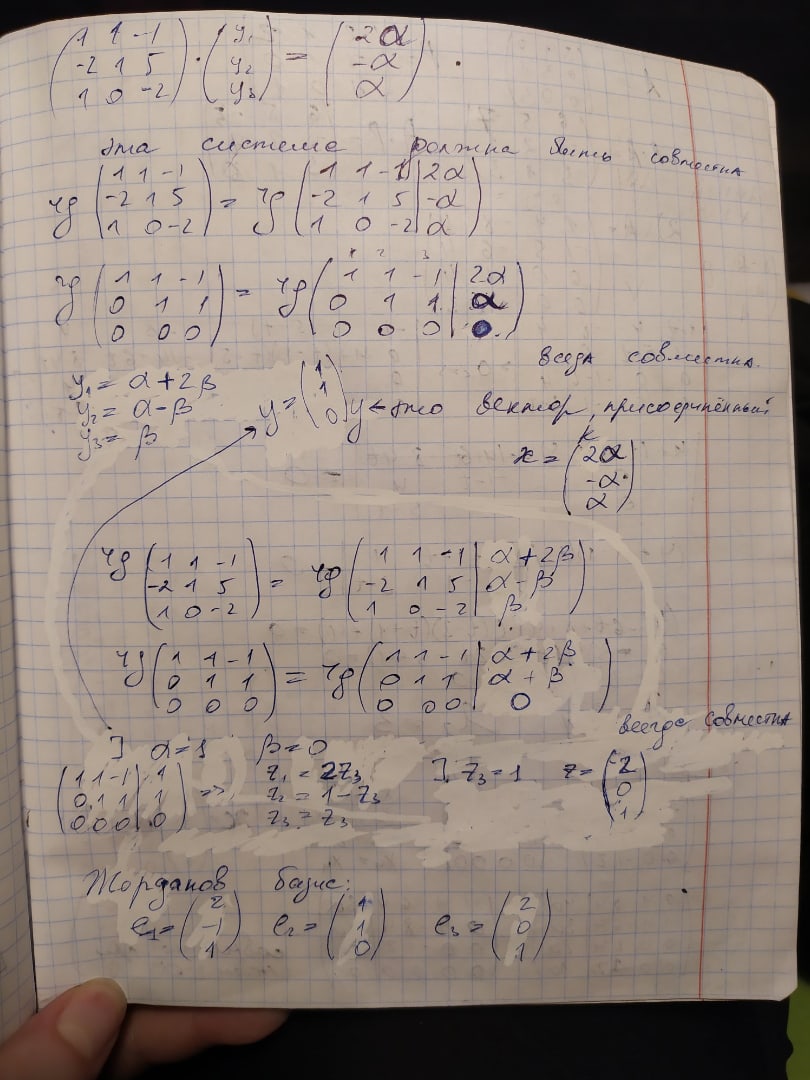 (1 1 -1; -2 1 5; 1 0 -2) · (y₁; y₂; y₃) = (2α; -α; α) .
эта система должна быть совместна
rg (1 1 -1; -2 1 5; 1 0 -2) = rg (1 1 -1 | 2α; -2 1 5 | -α; 1 0 -2 | α)
rg (1 1 -1; 0 1 1; 0 0 0) = rg (1 1 -1 | 2α; 0 1 1 | α; 0 0 0 | 0)
всегда совместна.
y₁ = α + 2β
y₂ = α - β
y₃ = β
y = (1; 1; 0) y ← это вектор, присоединённый
к
x = (2α; -α; α)
rg (1 1 -1; -2 1 5; 1 0 -2) = rg (1 1 -1 | α+2β; -2 1 5 | α-β; 1 0 -2 | β)
rg (1 1 -1; 0 1 1; 0 0 0) = rg (1 1 -1 | α+2β; 0 1 1 | α+β; 0 0 0 | 0)
всегда совместна
] α=1 β=0
(1 1 -1 | 1; 0 1 1 | 1; 0 0 0 | 0) => z₁ = 2z₃ ] z₃=1 z = (2; 0; 1)
z₂ = 1-z₃
z₃ = z₃
Жорданов базис:
e₁ = (2; -1; 1) e₂ = (1; 1; 0) e₃ = (2; 0; 1)